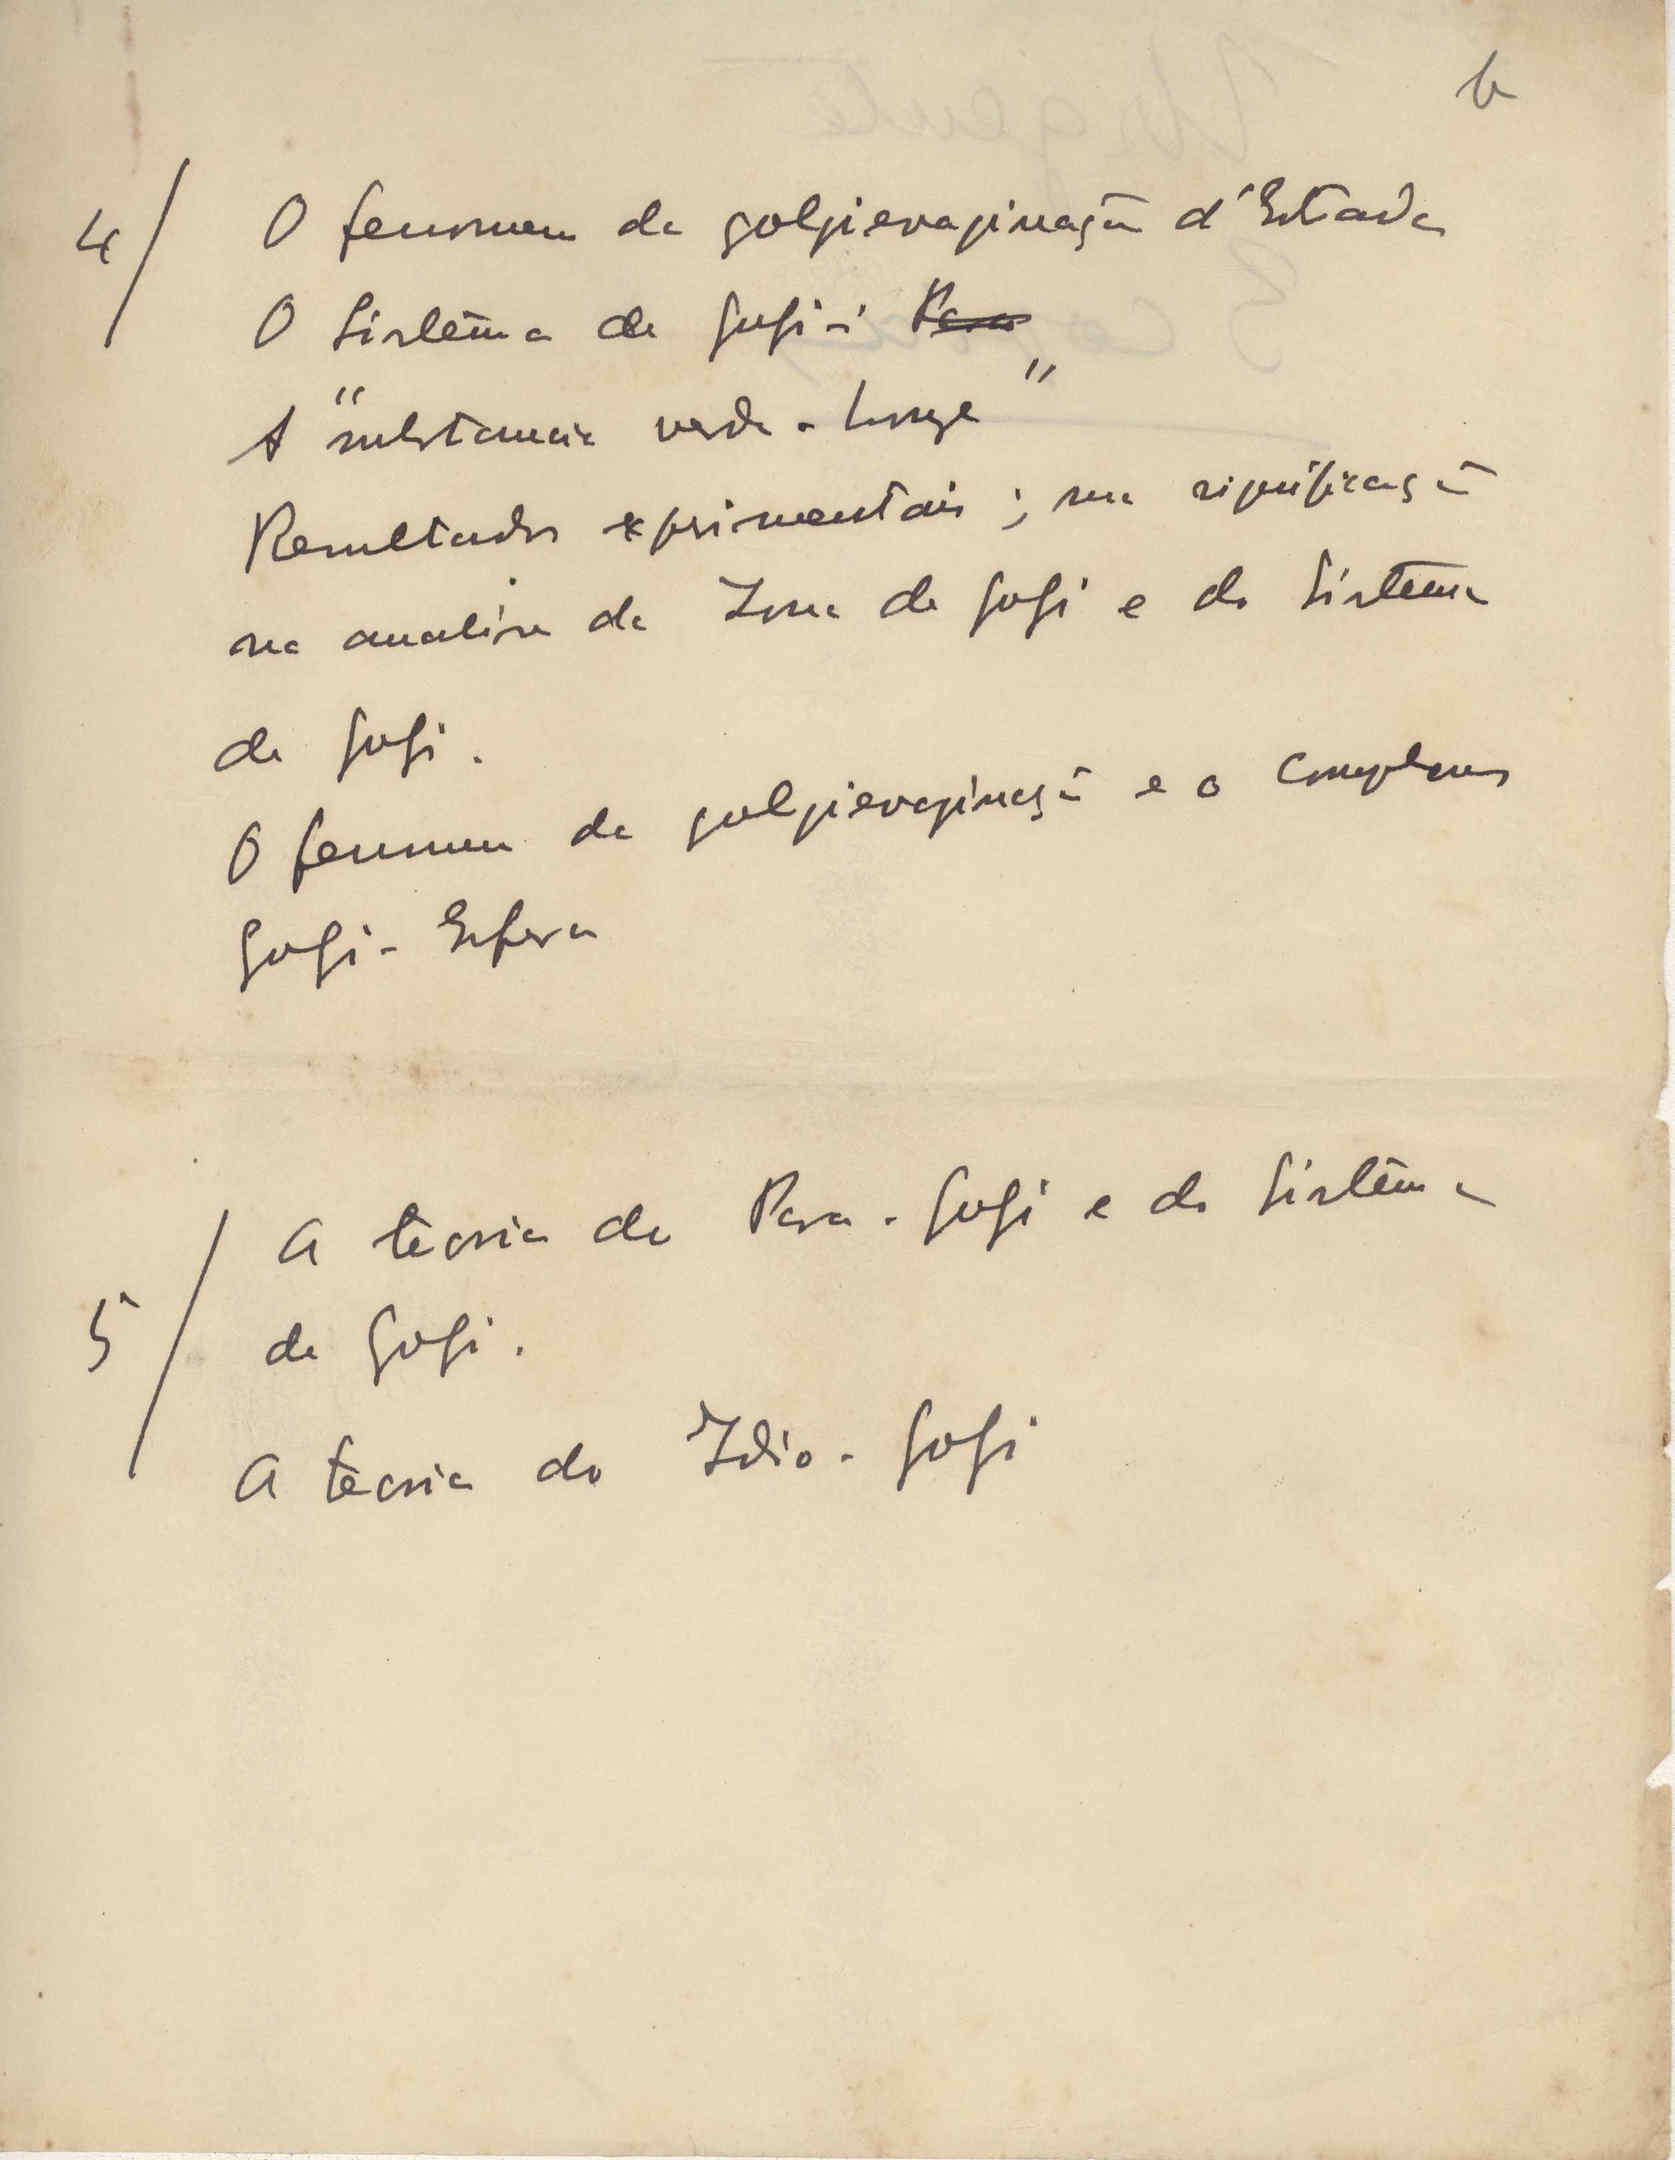 b
4/ O fenomeno da golgievaginação d'Estado
O Sistêma de Golgi-i Para
A "substancia verde-longe"
Resultados exprimentais; sua significação
na analise da Zona de Golgi e do Sistema
de Golgi.
O fenomeno da golgievaginação e o complexus
Golgi-Esfera
5/ A teoria do Para-Golgi e do Sistêma
de Golgi.
A teoria do Idio-Golgi